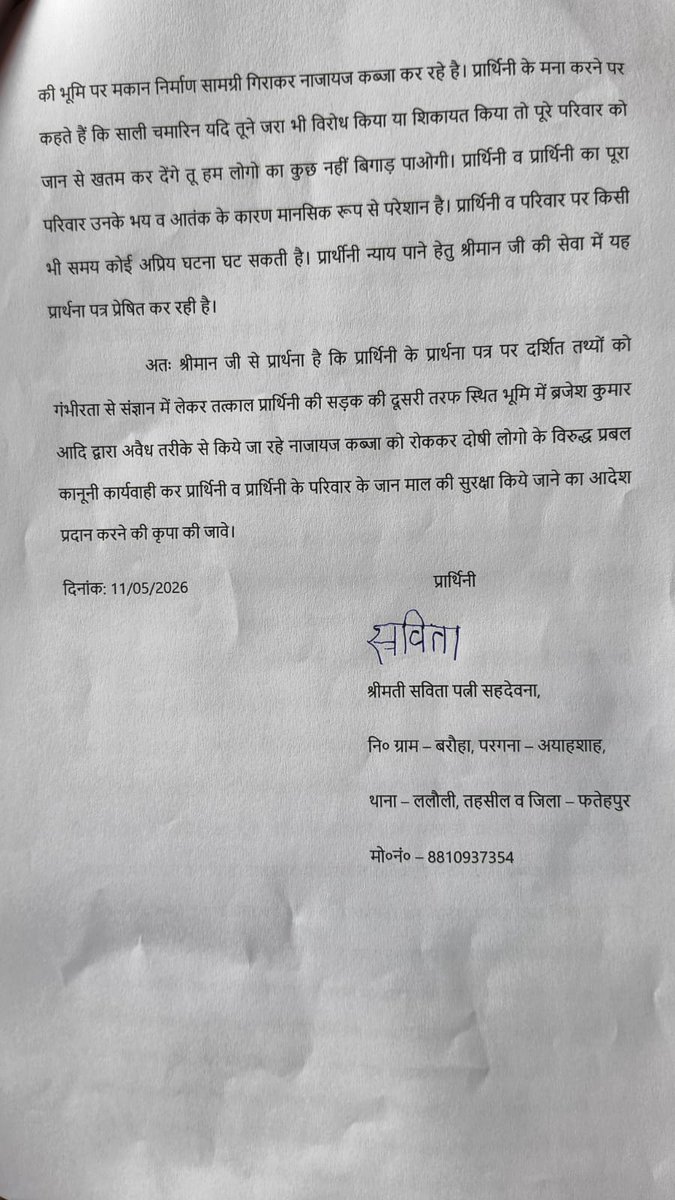 की भूमि पर मकान निर्माण सामग्री गिराकर नाजायज कब्जा कर रहे है। प्रार्थिनी के मना करने पर
कहते हैं कि साली चमारिन यदि तूने जरा भी विरोध किया या शिकायत किया तो पूरे परिवार को
जान से खतम कर देंगे तू हम लोगो का कुछ नहीं बिगाड़ पाओगी। प्रार्थिनी व प्रार्थिनी का पूरा
परिवार उनके भय व आतंक के कारण मानसिक रूप से परेशान है। प्रार्थिनी व परिवार पर किसी
भी समय कोई अप्रिय घटना घट सकती है। प्रार्थीनी न्याय पाने हेतु श्रीमान जी की सेवा में यह
प्रार्थना पत्र प्रेषित कर रही है।
अतः श्रीमान जी से प्रार्थना है कि प्रार्थिनी के प्रार्थना पत्र पर दर्शित तथ्यों को
गंभीरता से संज्ञान में लेकर तत्काल प्रार्थिनी की सड़क की दूसरी तरफ स्थित भूमि में ब्रजेश कुमार
आदि द्वारा अवैध तरीके से किये जा रहे नाजायज कब्जा को रोककर दोषी लोगो के विरुद्ध प्रबल
कानूनी कार्यवाही कर प्रार्थिनी व प्रार्थिनी के परिवार के जान माल की सुरक्षा किये जाने का आदेश
प्रदान करने की कृपा की जावे।
दिनांक: 11/05/2026 प्रार्थिनी
सविता
श्रीमती सविता पत्नी सहदेवना,
नि० ग्राम – बरौहा, परगना – अयाहशाह,
थाना – ललौली, तहसील व जिला – फतेहपुर
मो०नं० – 8810937354